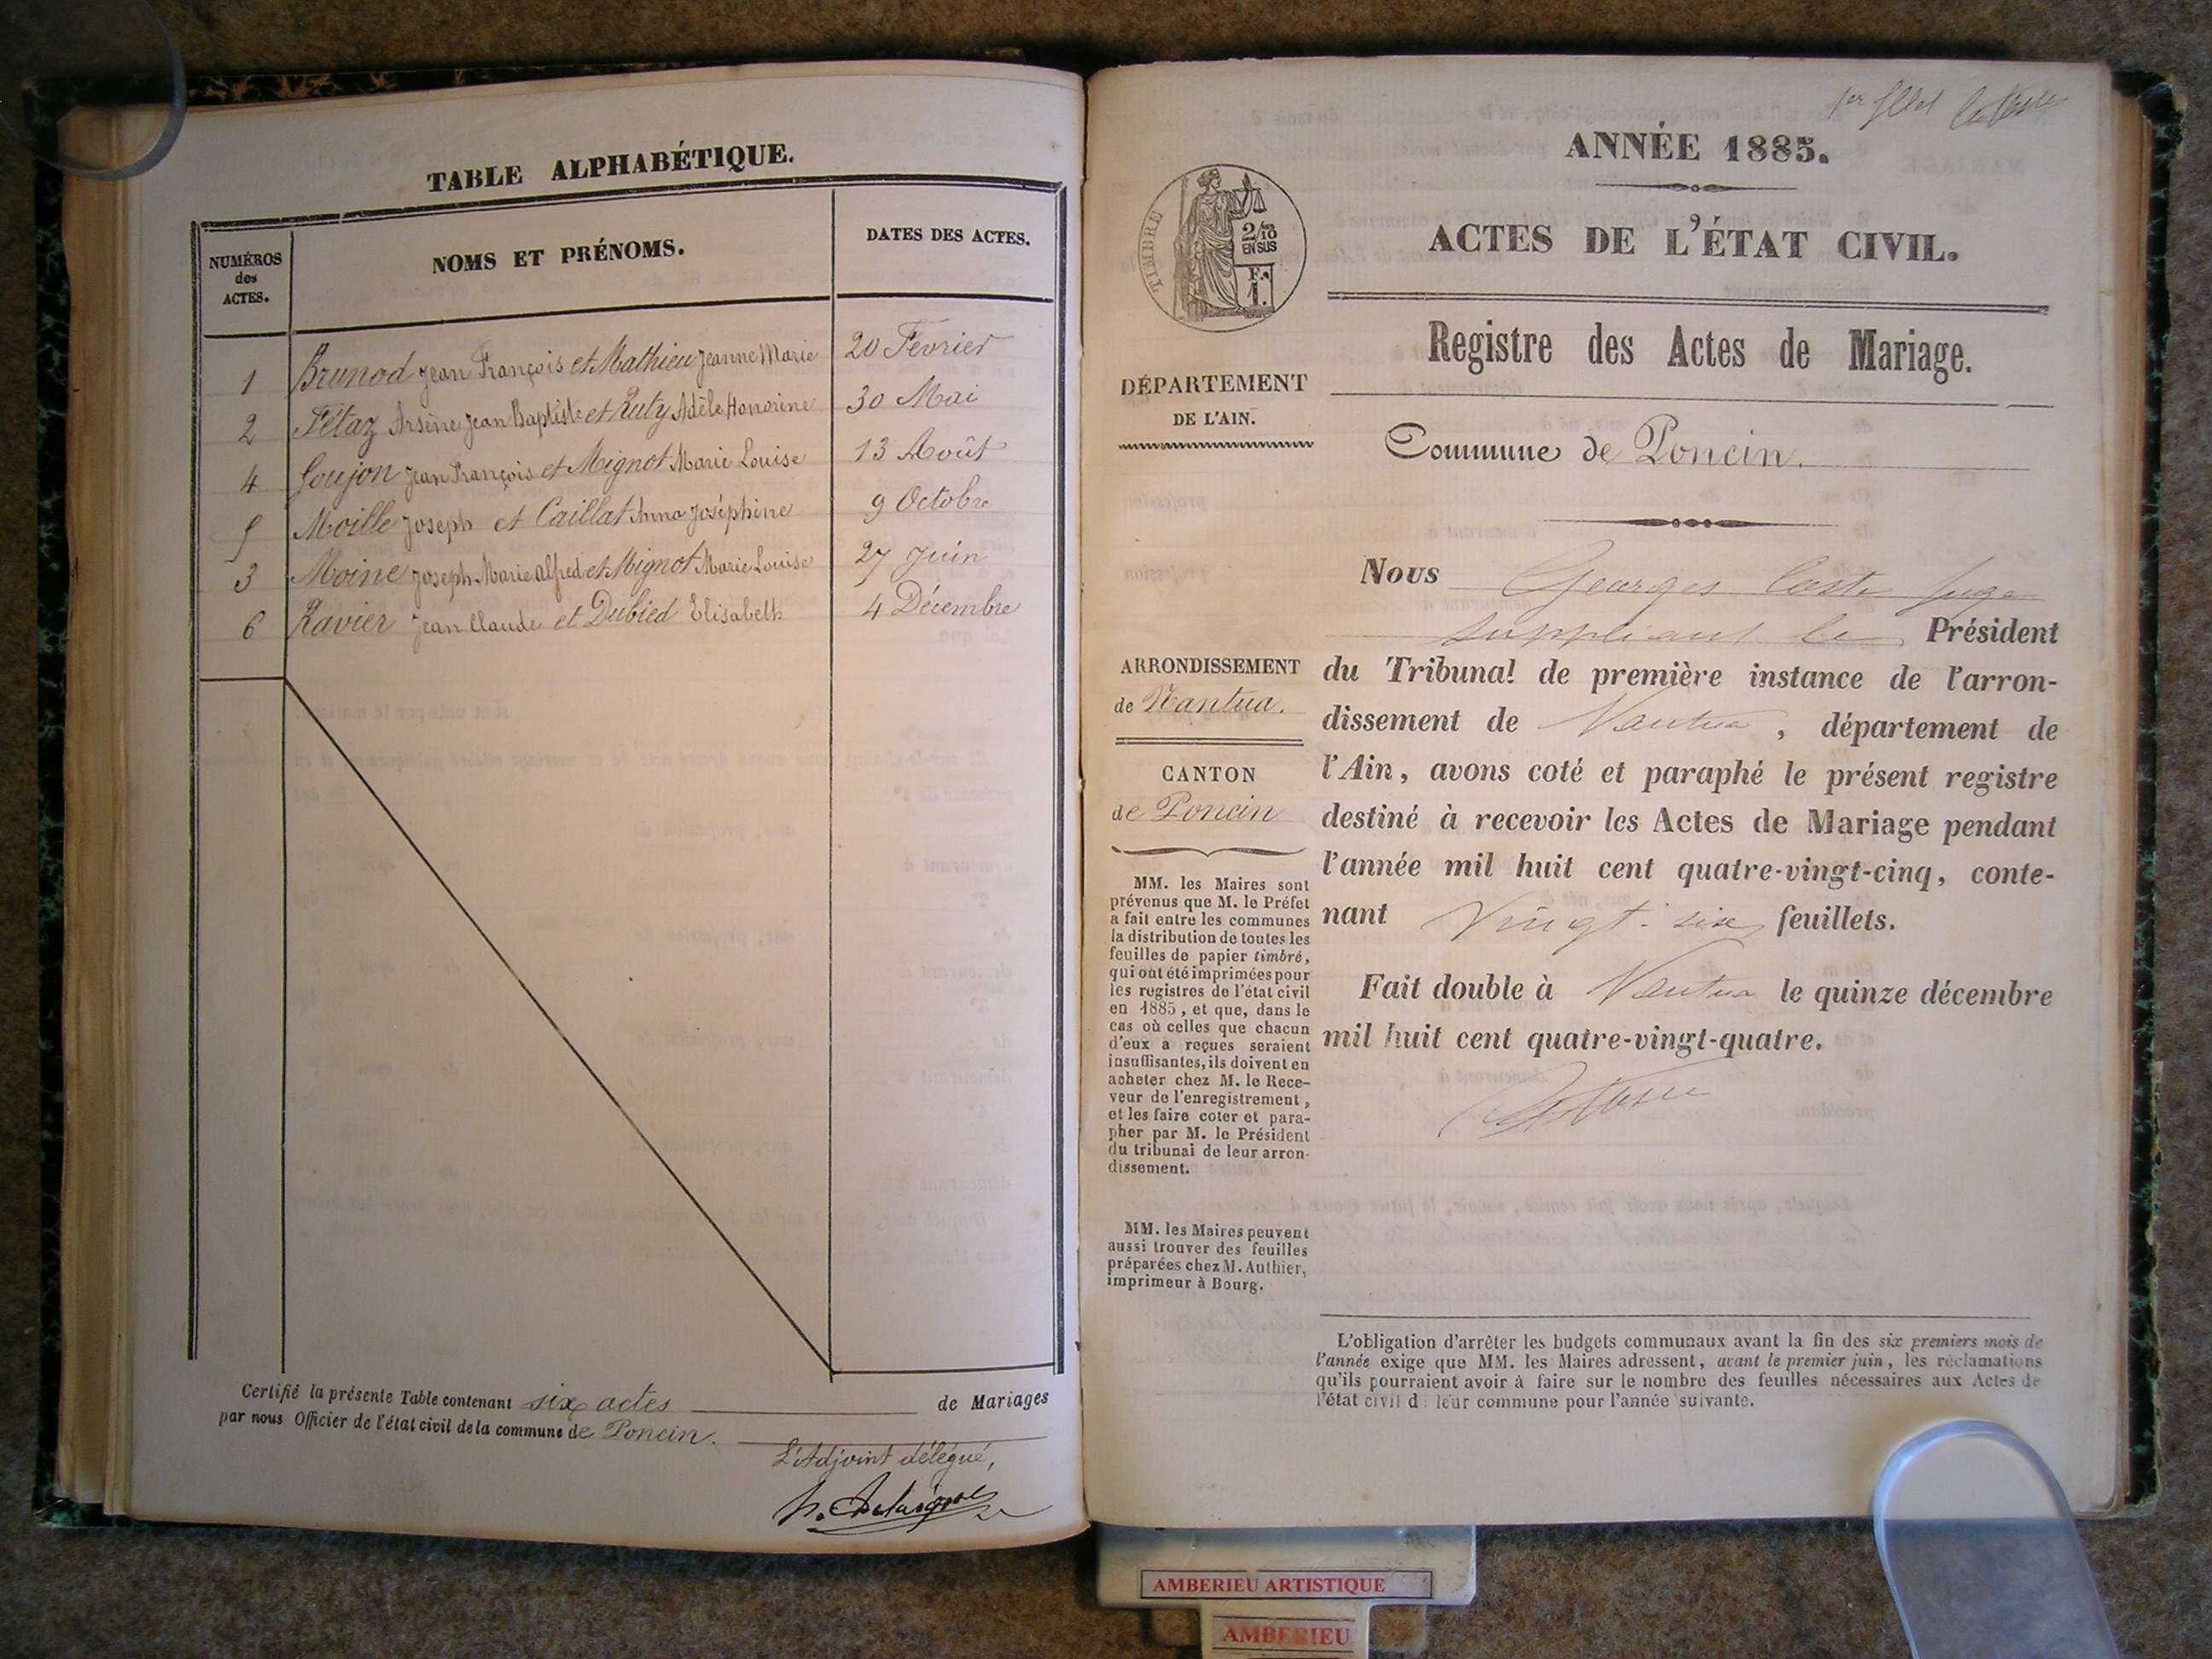 TABLE ALPHABÉTIQUE.
NUMÉROS
des
ACTES.
NOMS ET PRÉNOMS.
DATES DES ACTES.
1 Brunod Jean François et Mathieu Jeanne Marie 20 Fevrier
2 Fétaz Arsène Jean Baptiste et Ruty Adèle Honorine 30 Mai
4 Goujon Jean François et Mignot Marie Louise 13 Août
5 Moille Joseph et Caillat Anna Joséphine 9 Octobre
3 Moine Joseph Marie Alfred et Mignot Marie Louise 27 Juin
6 Ravier Jean Claude et Dubied Elisabeth 4 Décembre
Certifié la présente Table contenant six actes de Mariages
par nous Officier de l'état civil de la commune de Poncin.
L'Adjoint délégué,
1er
ANNÉE 1885.
ACTES DE L'ÉTAT CIVIL.
TIMBRE
2/10
EN SUS
F.
1.
Registre des Actes de Mariage.
DÉPARTEMENT
DE L'AIN.
Commune de Poncin.
Nous Georges Juge
suppléant le Président
du Tribunal de première instance de l'arron-
dissement de Nantua, département de
l'Ain, avons coté et paraphé le présent registre
destiné à recevoir les Actes de Mariage pendant
l'année mil huit cent quatre-vingt-cinq, conte-
nant Vingt-six feuillets.
Fait double à Nantua le quinze décembre
mil huit cent quatre-vingt-quatre.
ARRONDISSEMENT
de Nantua.
CANTON
de Poncin
MM. les Maires sont
prévenus que M. le Préfet
a fait entre les communes
la distribution de toutes les
feuilles de papier timbré,
qui ont été imprimées pour
les registres de l'état civil
en 1885, et que, dans le
cas où celles que chacun
d'eux a reçues seraient
insuffisantes, ils doivent en
acheter chez M. le Rece-
veur de l'enregistrement,
et les faire coter et para-
pher par M. le Président
du tribunal de leur arron-
dissement.
MM. les Maires peuvent
aussi trouver des feuilles
préparées chez M. Authier,
imprimeur à Bourg.
L'obligation d'arrêter les budgets communaux avant la fin des six premiers mois de
l'année exige que MM. les Maires adressent, avant le premier juin, les réclamations
qu'ils pourraient avoir à faire sur le nombre des feuilles nécessaires aux Actes de
l'état civil de leur commune pour l'année suivante.
AMBERIEU ARTISTIQUE
AMBERIEU